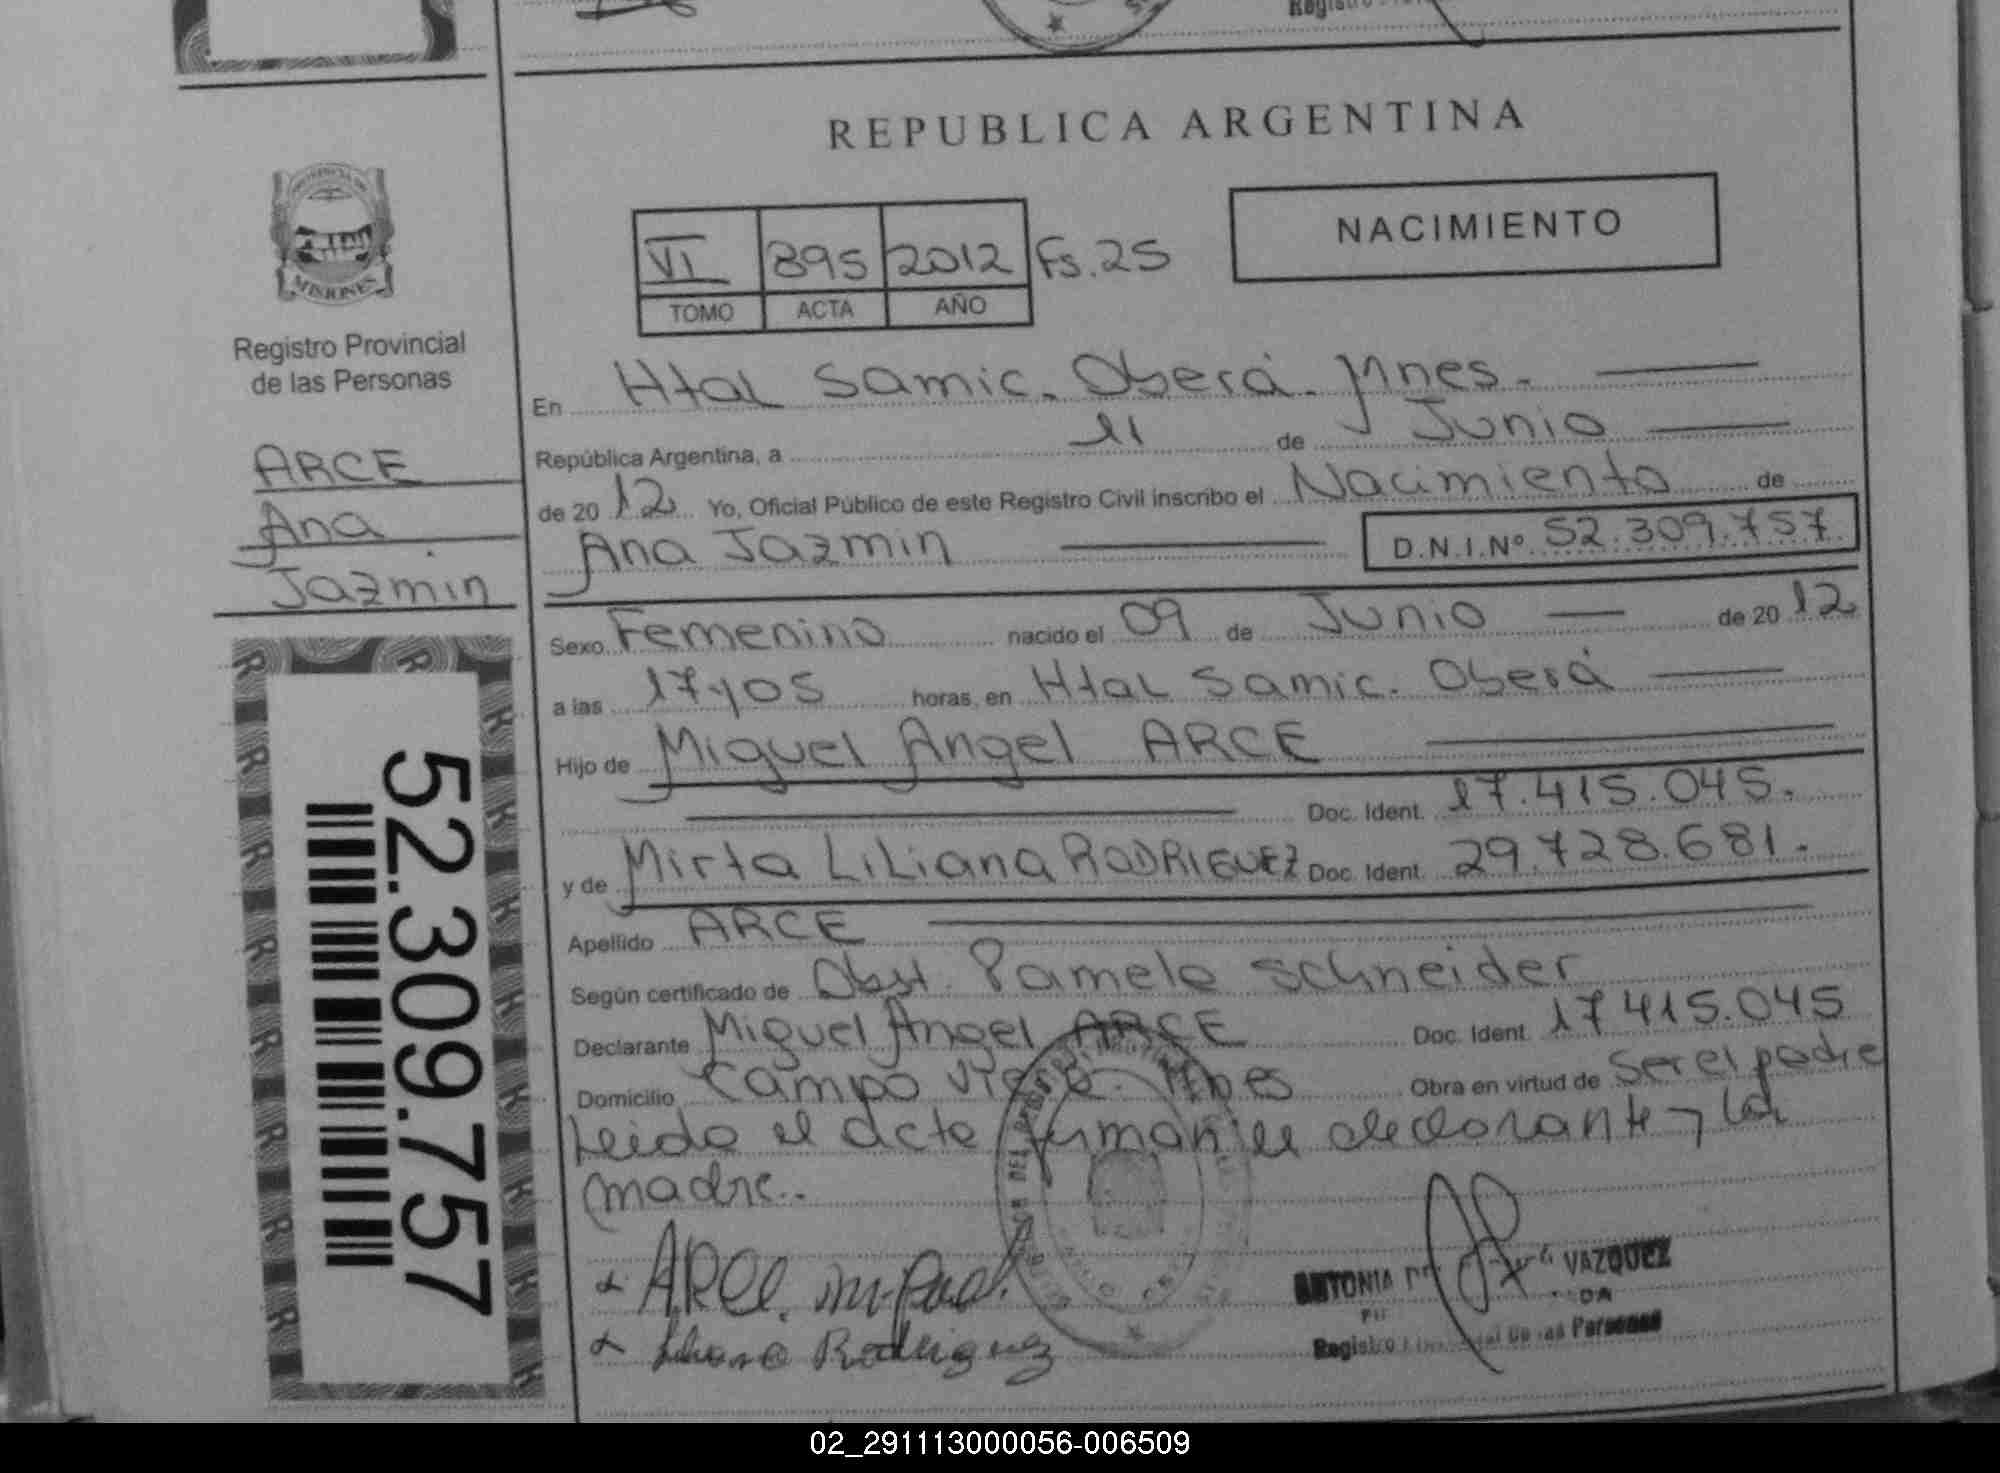 REPUBLICA ARGENTINA
PROVINCIA DE
MISIONES
Registro Provincial
de las Personas
VI 895 2012 Fs. 25
TOMO ACTA AÑO
NACIMIENTO
En Htal Samic. Oberá. Mnes.
República Argentina, a 11 de Junio
de 2012 Yo, Oficial Público de este Registro Civil inscribo el Nacimiento de
Ana Jazmin
D.N.I.Nº 52.309.757
ARCE
Ana
Jazmin
Sexo Femenino nacido el 09 de Junio de 2012
a las 17 y 05 horas, en Htal Samic. Oberá
Hijo de Miguel Angel ARCE
Doc. Ident. 17.415.045.
y de Mirta Liliana RODRIGUEZ Doc. Ident. 29.728.681.
Apellido ARCE
Según certificado de Obst. Pamela Schneider
Declarante Miguel Angel ARCE Doc. Ident. 17415.045
Domicilio Campo Viera. Mnes Obra en virtud de ser el padre
Leida el acta firman el declarante y la
madre..
52.309.757
ARCE
Rodriguez
ANTONIA VAZQUEZ
Registro de las Personas
02_291113000056-006509